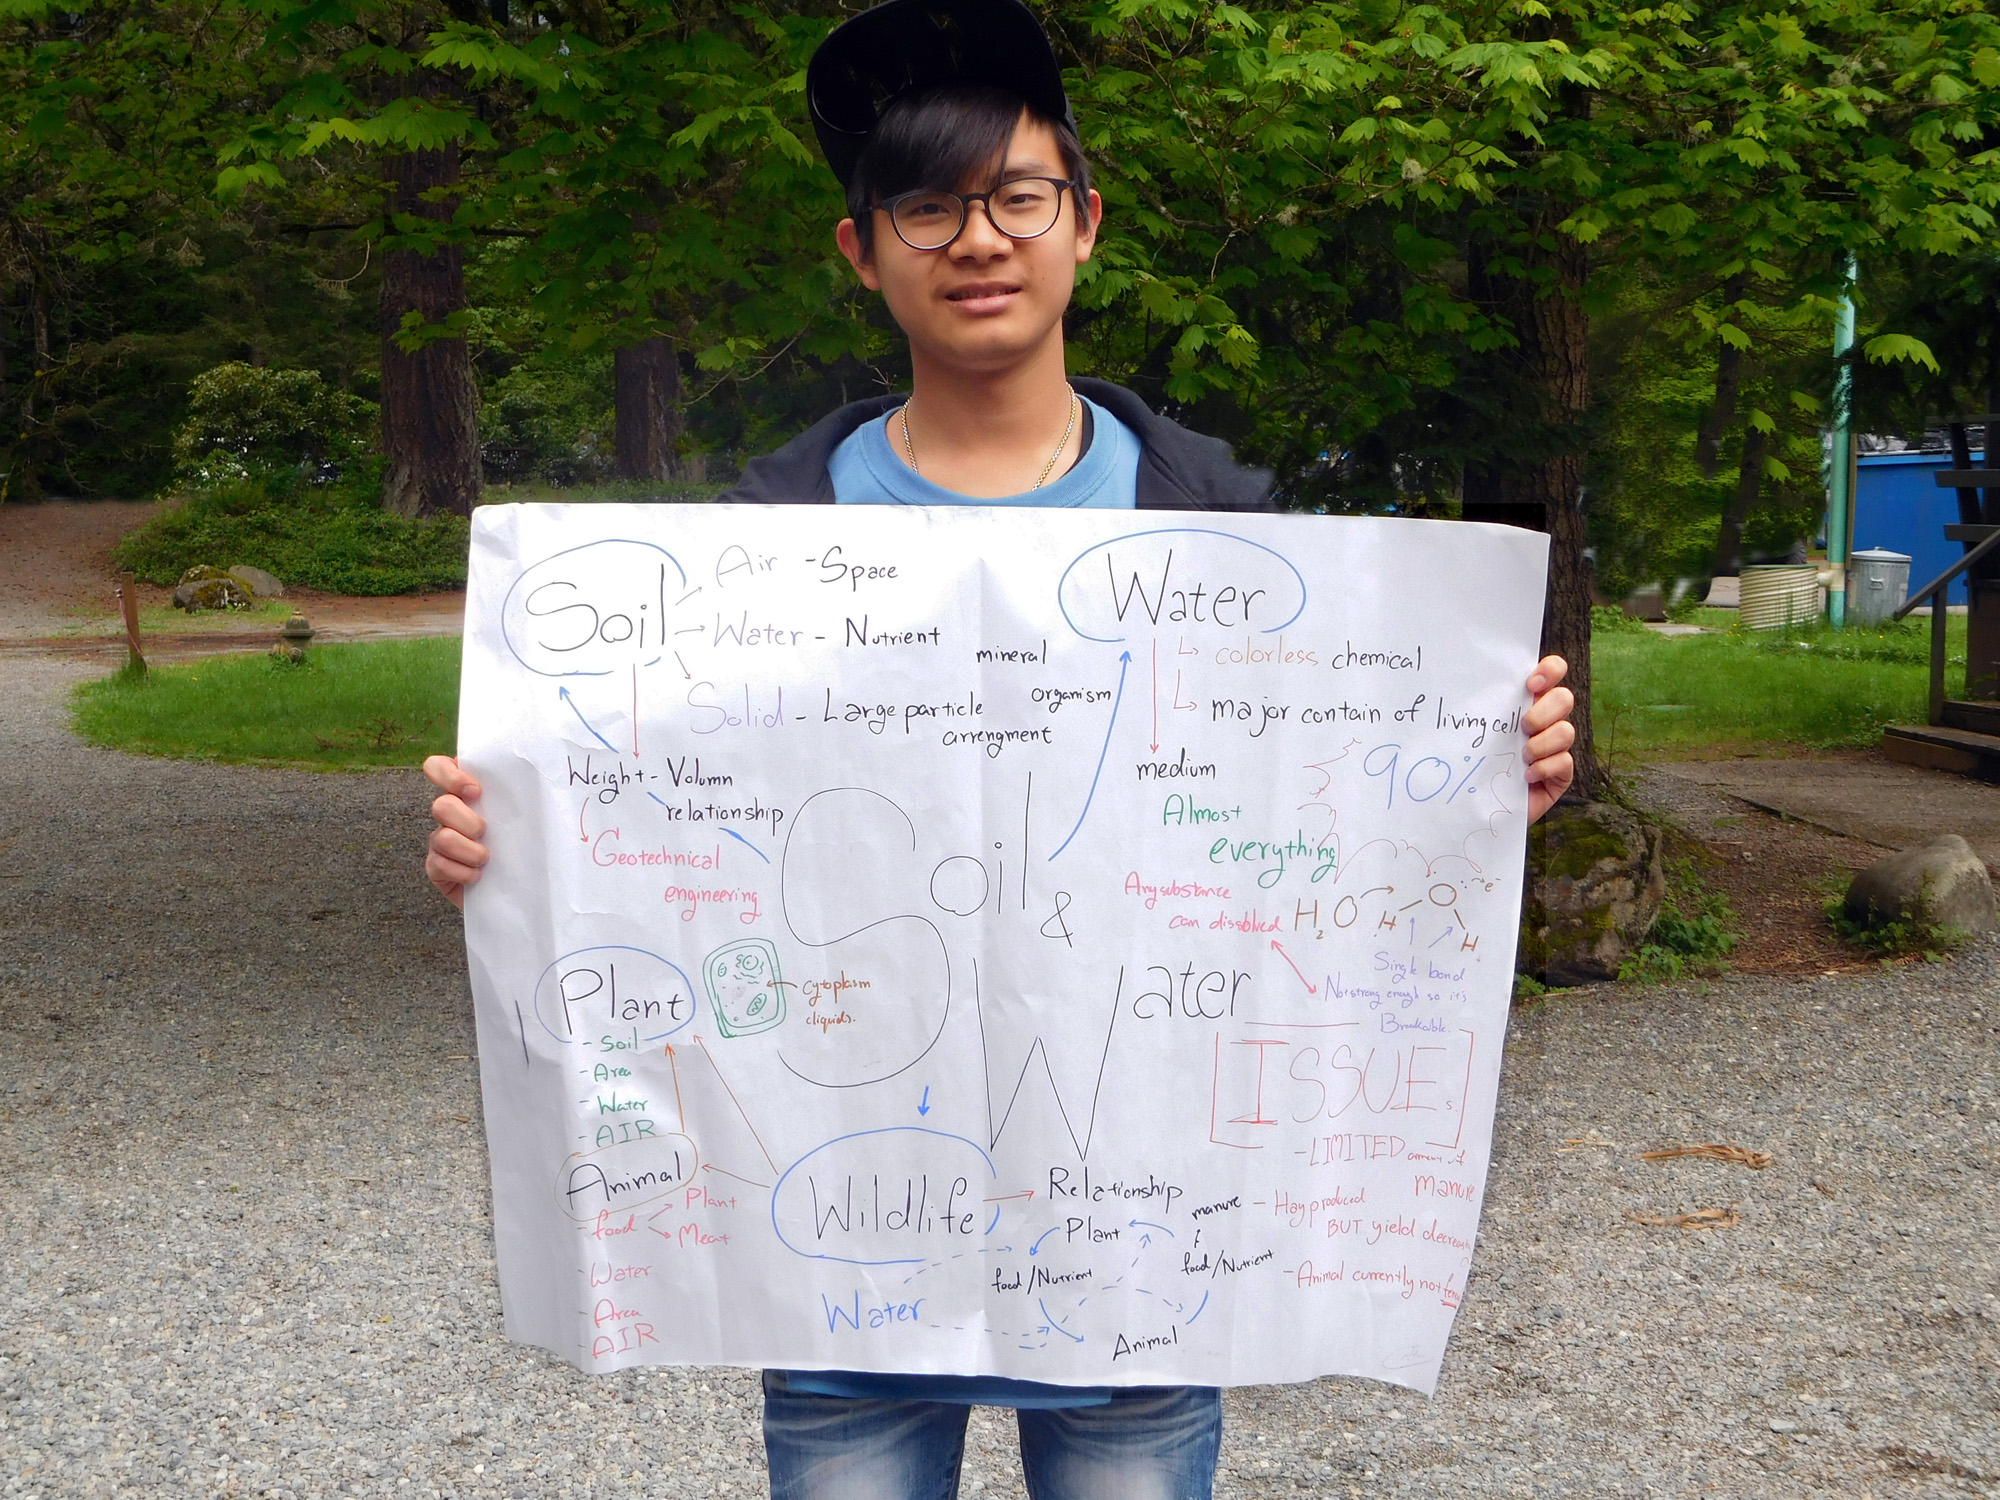 Soil
Air - Space
Water - Nutrient
mineral
organism
Solid - Large particle
arrengment
Weight - Volumn
relationship
Geotechnical
engineering
Water
colorless chemical
major contain of living cell
90%
medium
Almost
everything
Any substance
can dissolved
H2O
H O H
e-
Single bond
Not strong enough so it's
Breakable.
Soil
&
Water
Plant
- Soil
- Area
- Water
- AIR
cytoplasm
Animal
- food
Plant
Meat
- Water
- Area
- AIR
Wildlife
Relationship
Plant
food/Nutrient
Animal
manure
&
food/Nutrient
Water
[ISSUEs.]
- LIMITED
manure
- Hay produced
BUT yield
- Animal currently not